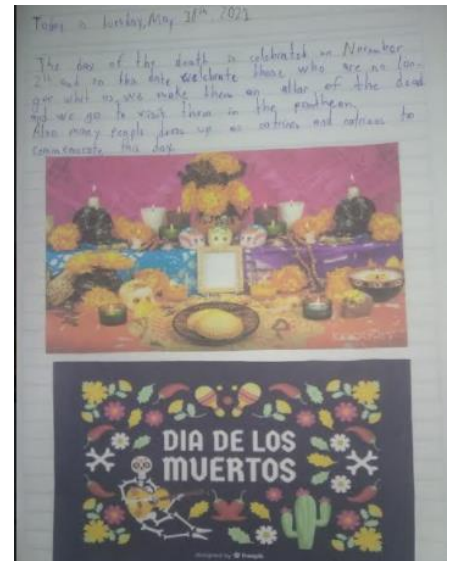 Today is tuesday, May 18th 2021
The day of the death is celebrated on November
2th and on the date we celebrate those who are no lon-
ger whit us, we make them an altar of the dead
and we go to visit them in the pantheon
Also many people dress up as catrines and catrinas to
commemorate this day.
DIA DE LOS
MUERTOS
designed by freepik